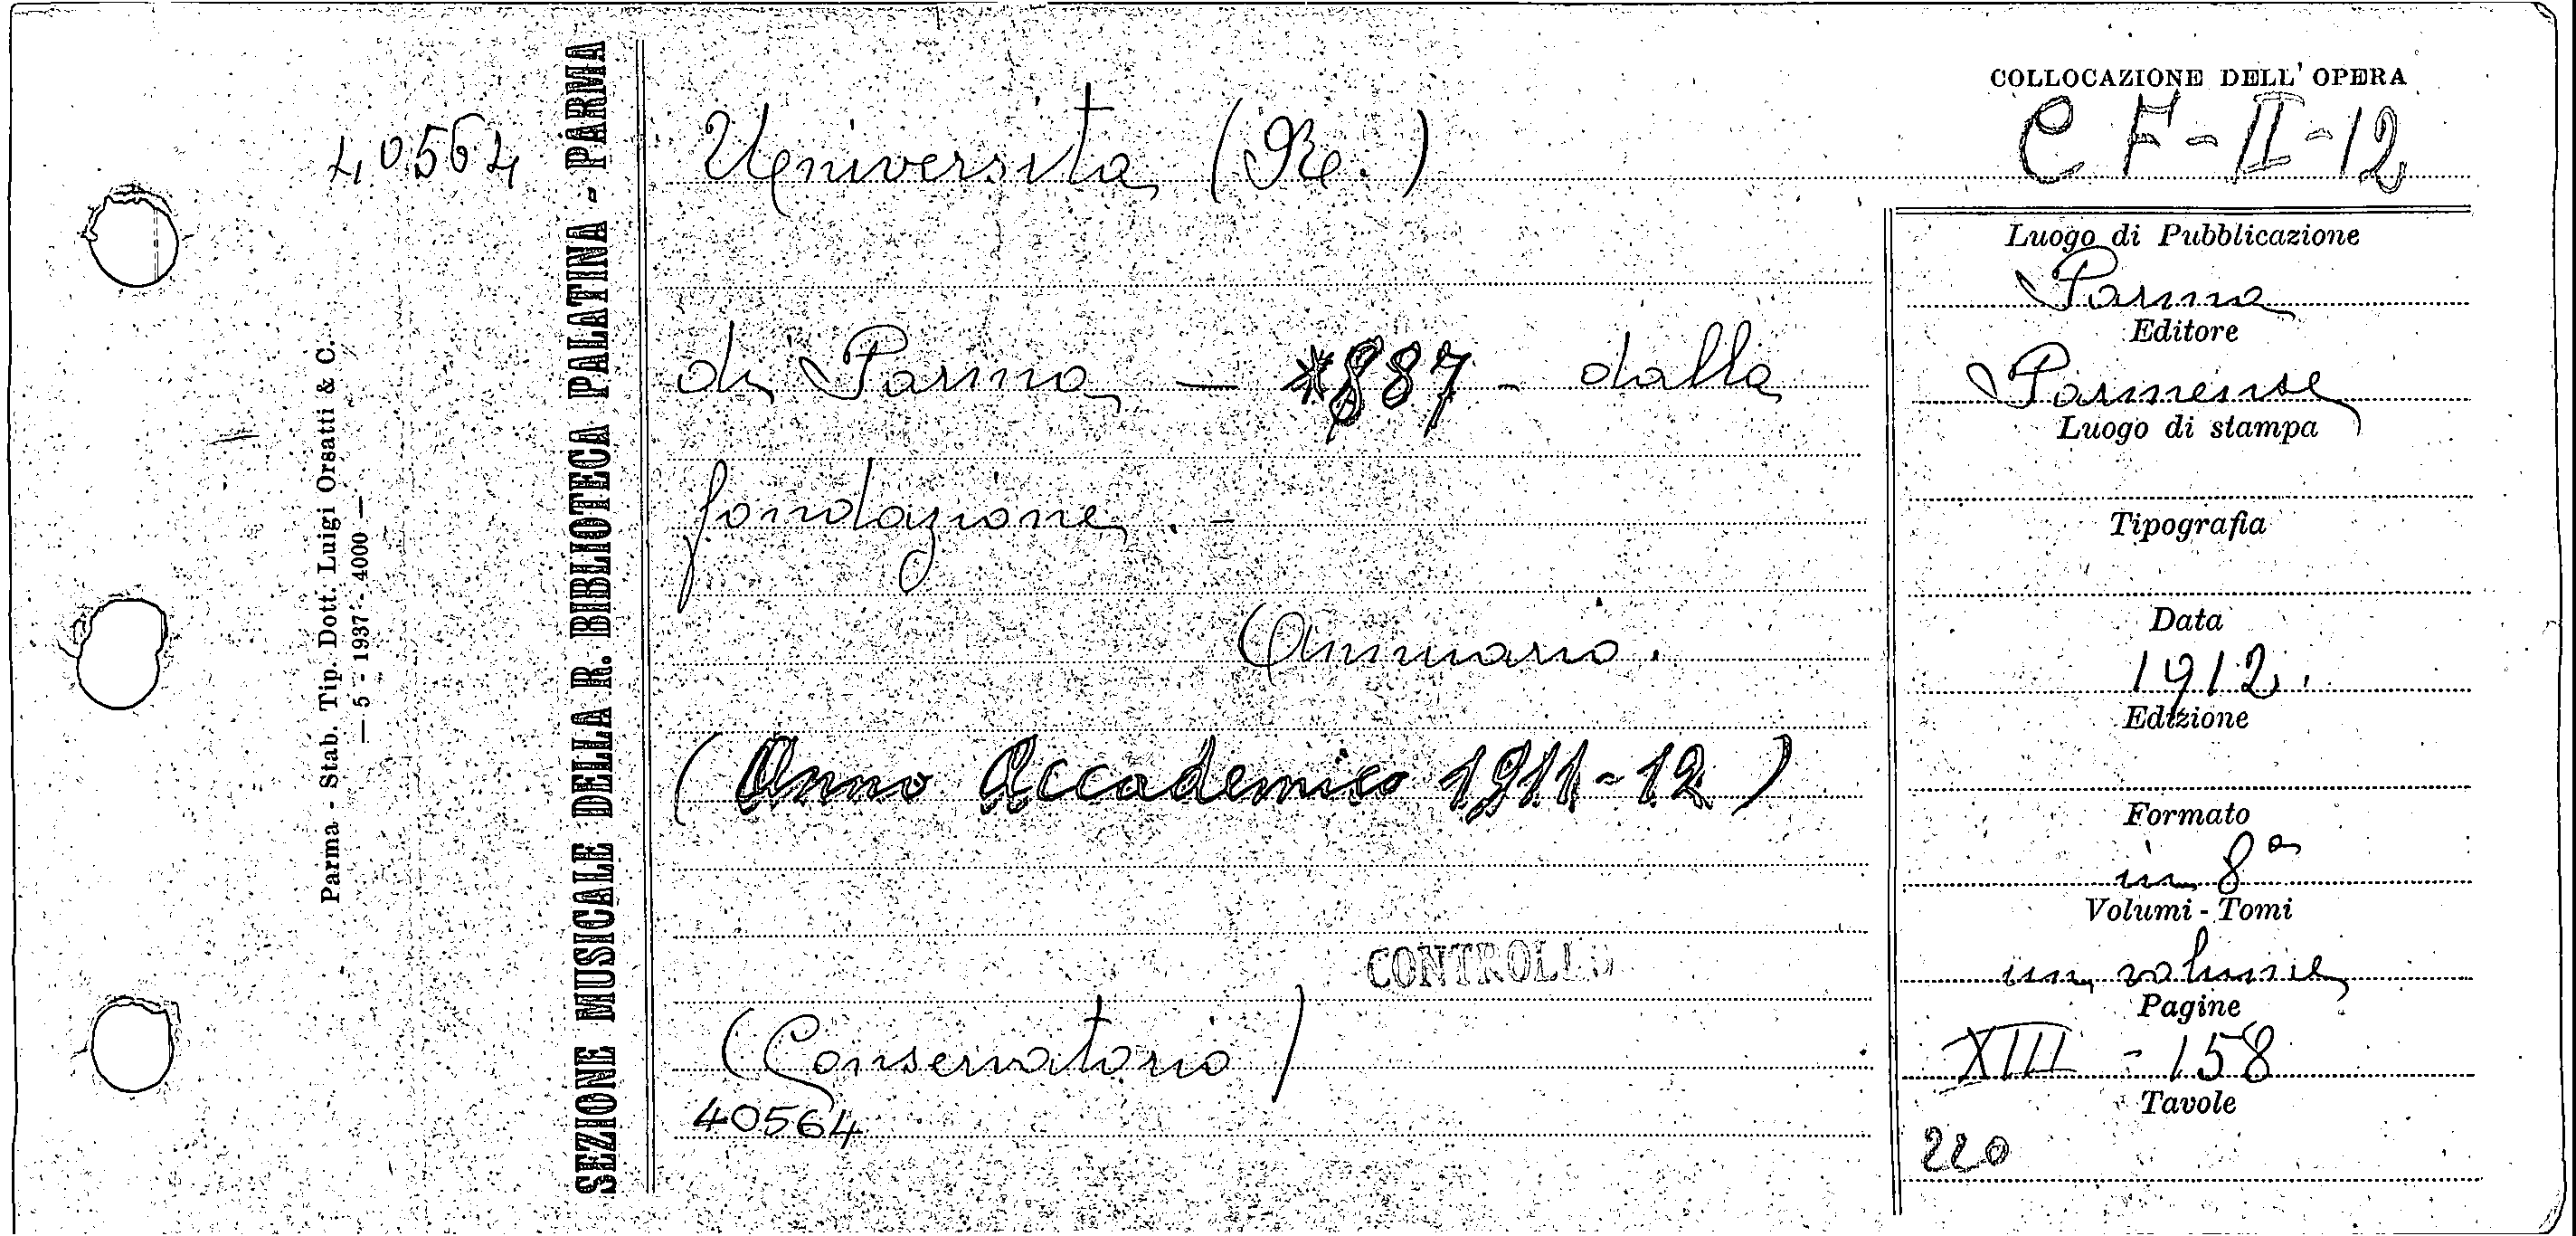 40564
Parma - Stab. Tip. Dott. Luigi Orsatti & C.
— 5 - 1937 - 4000 —
SEZIONE MUSICALE DELLA R. BIBLIOTECA PALATINA - PARMA
Università (Re.)
di Parma - *887 - dalla
fondazione. -
Annuario.
(Anno Accademico 1911-12)
CONTROLLO
(Conservatorio)
40564
COLLOCAZIONE DELL'OPERA
C F-II-12
Luogo di Pubblicazione
Parma
Editore
Parmense
Luogo di stampa
Tipografia
Data
1912.
Edizione
Formato
in 8º
Volumi - Tomi
un volume
Pagine
XIII - 158
Tavole
220